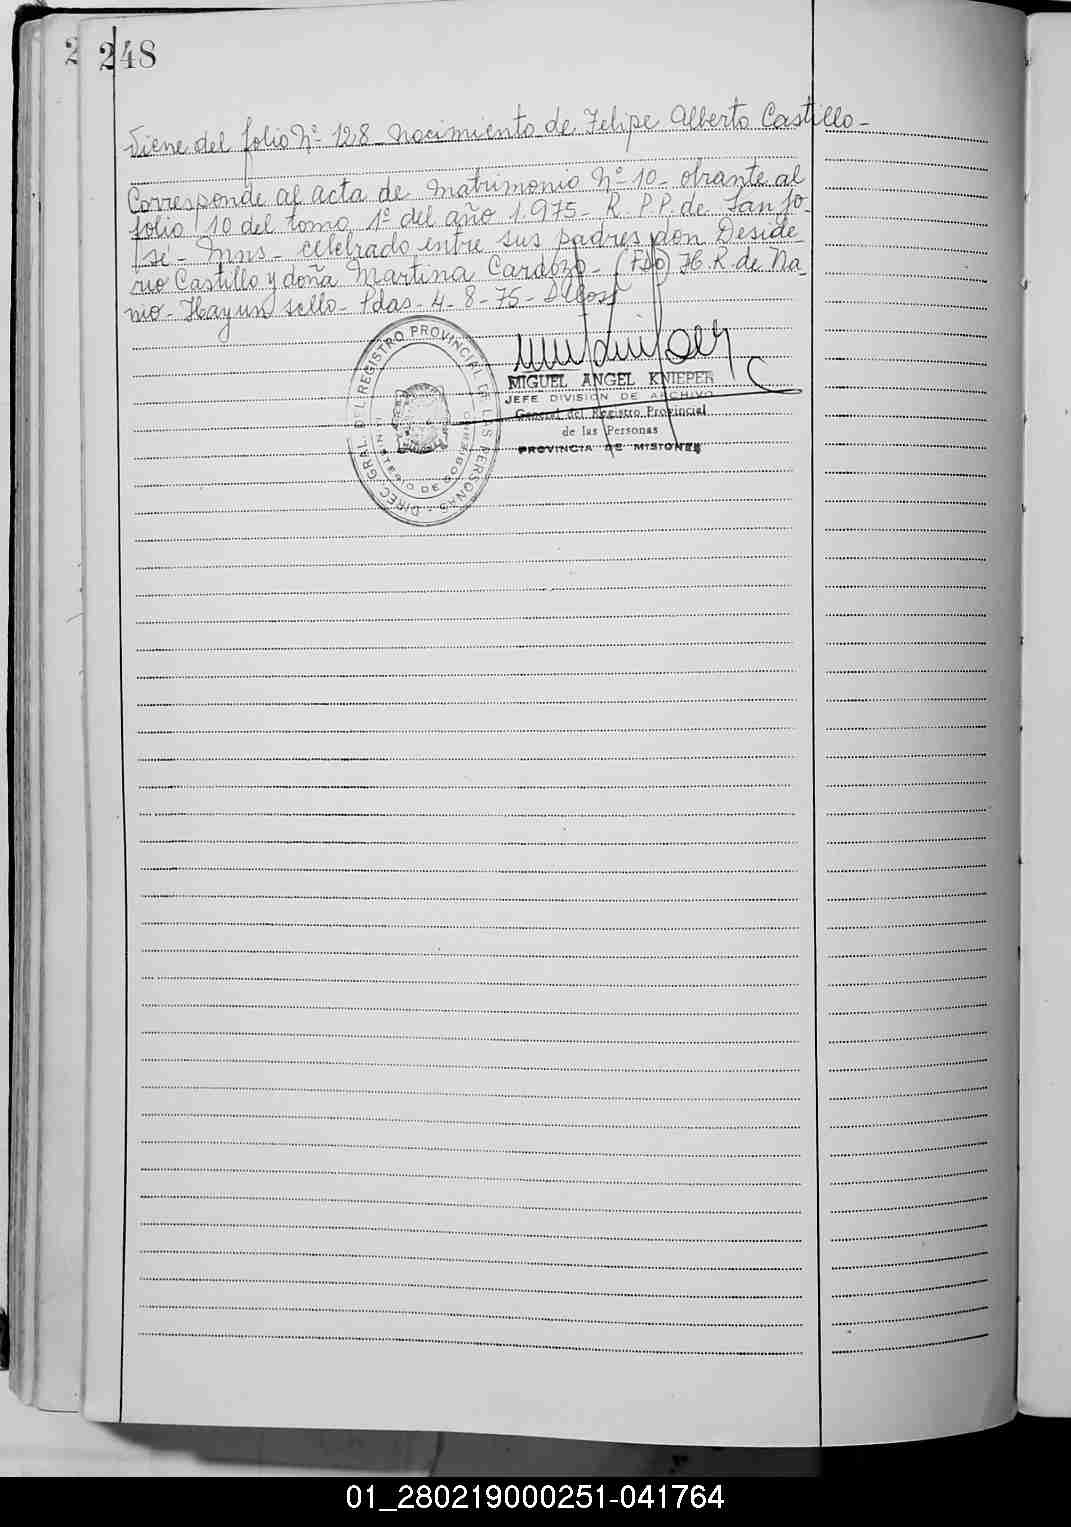 2 248
Viene del folio Nº 128_ Nacimiento de Felipe Alberto Castillo_
Corresponde al acta de Matrimonio Nº 10_ obrante al
folio 10 del tomo 1º del año 1.975_ R. P.P. de San Jo_
sé_ Mns_ celebrado entre sus padres don Deside_
rio Castillo y doña Martina Cardozo_ (Fdo) H. R. de Na_
nio_ Hay un sello_ Pdas_ 4_8_75_
DIREC. GRAL. DEL REGISTRO PROVINCIAL DE LAS PERSONAS
MINISTERIO DE GOBIERNO
MIGUEL ANGEL KNIEPER
JEFE DIVISION DE ARCHIVO
General del Registro Provincial
de las Personas
PROVINCIA DE MISIONES
01_280219000251-041764